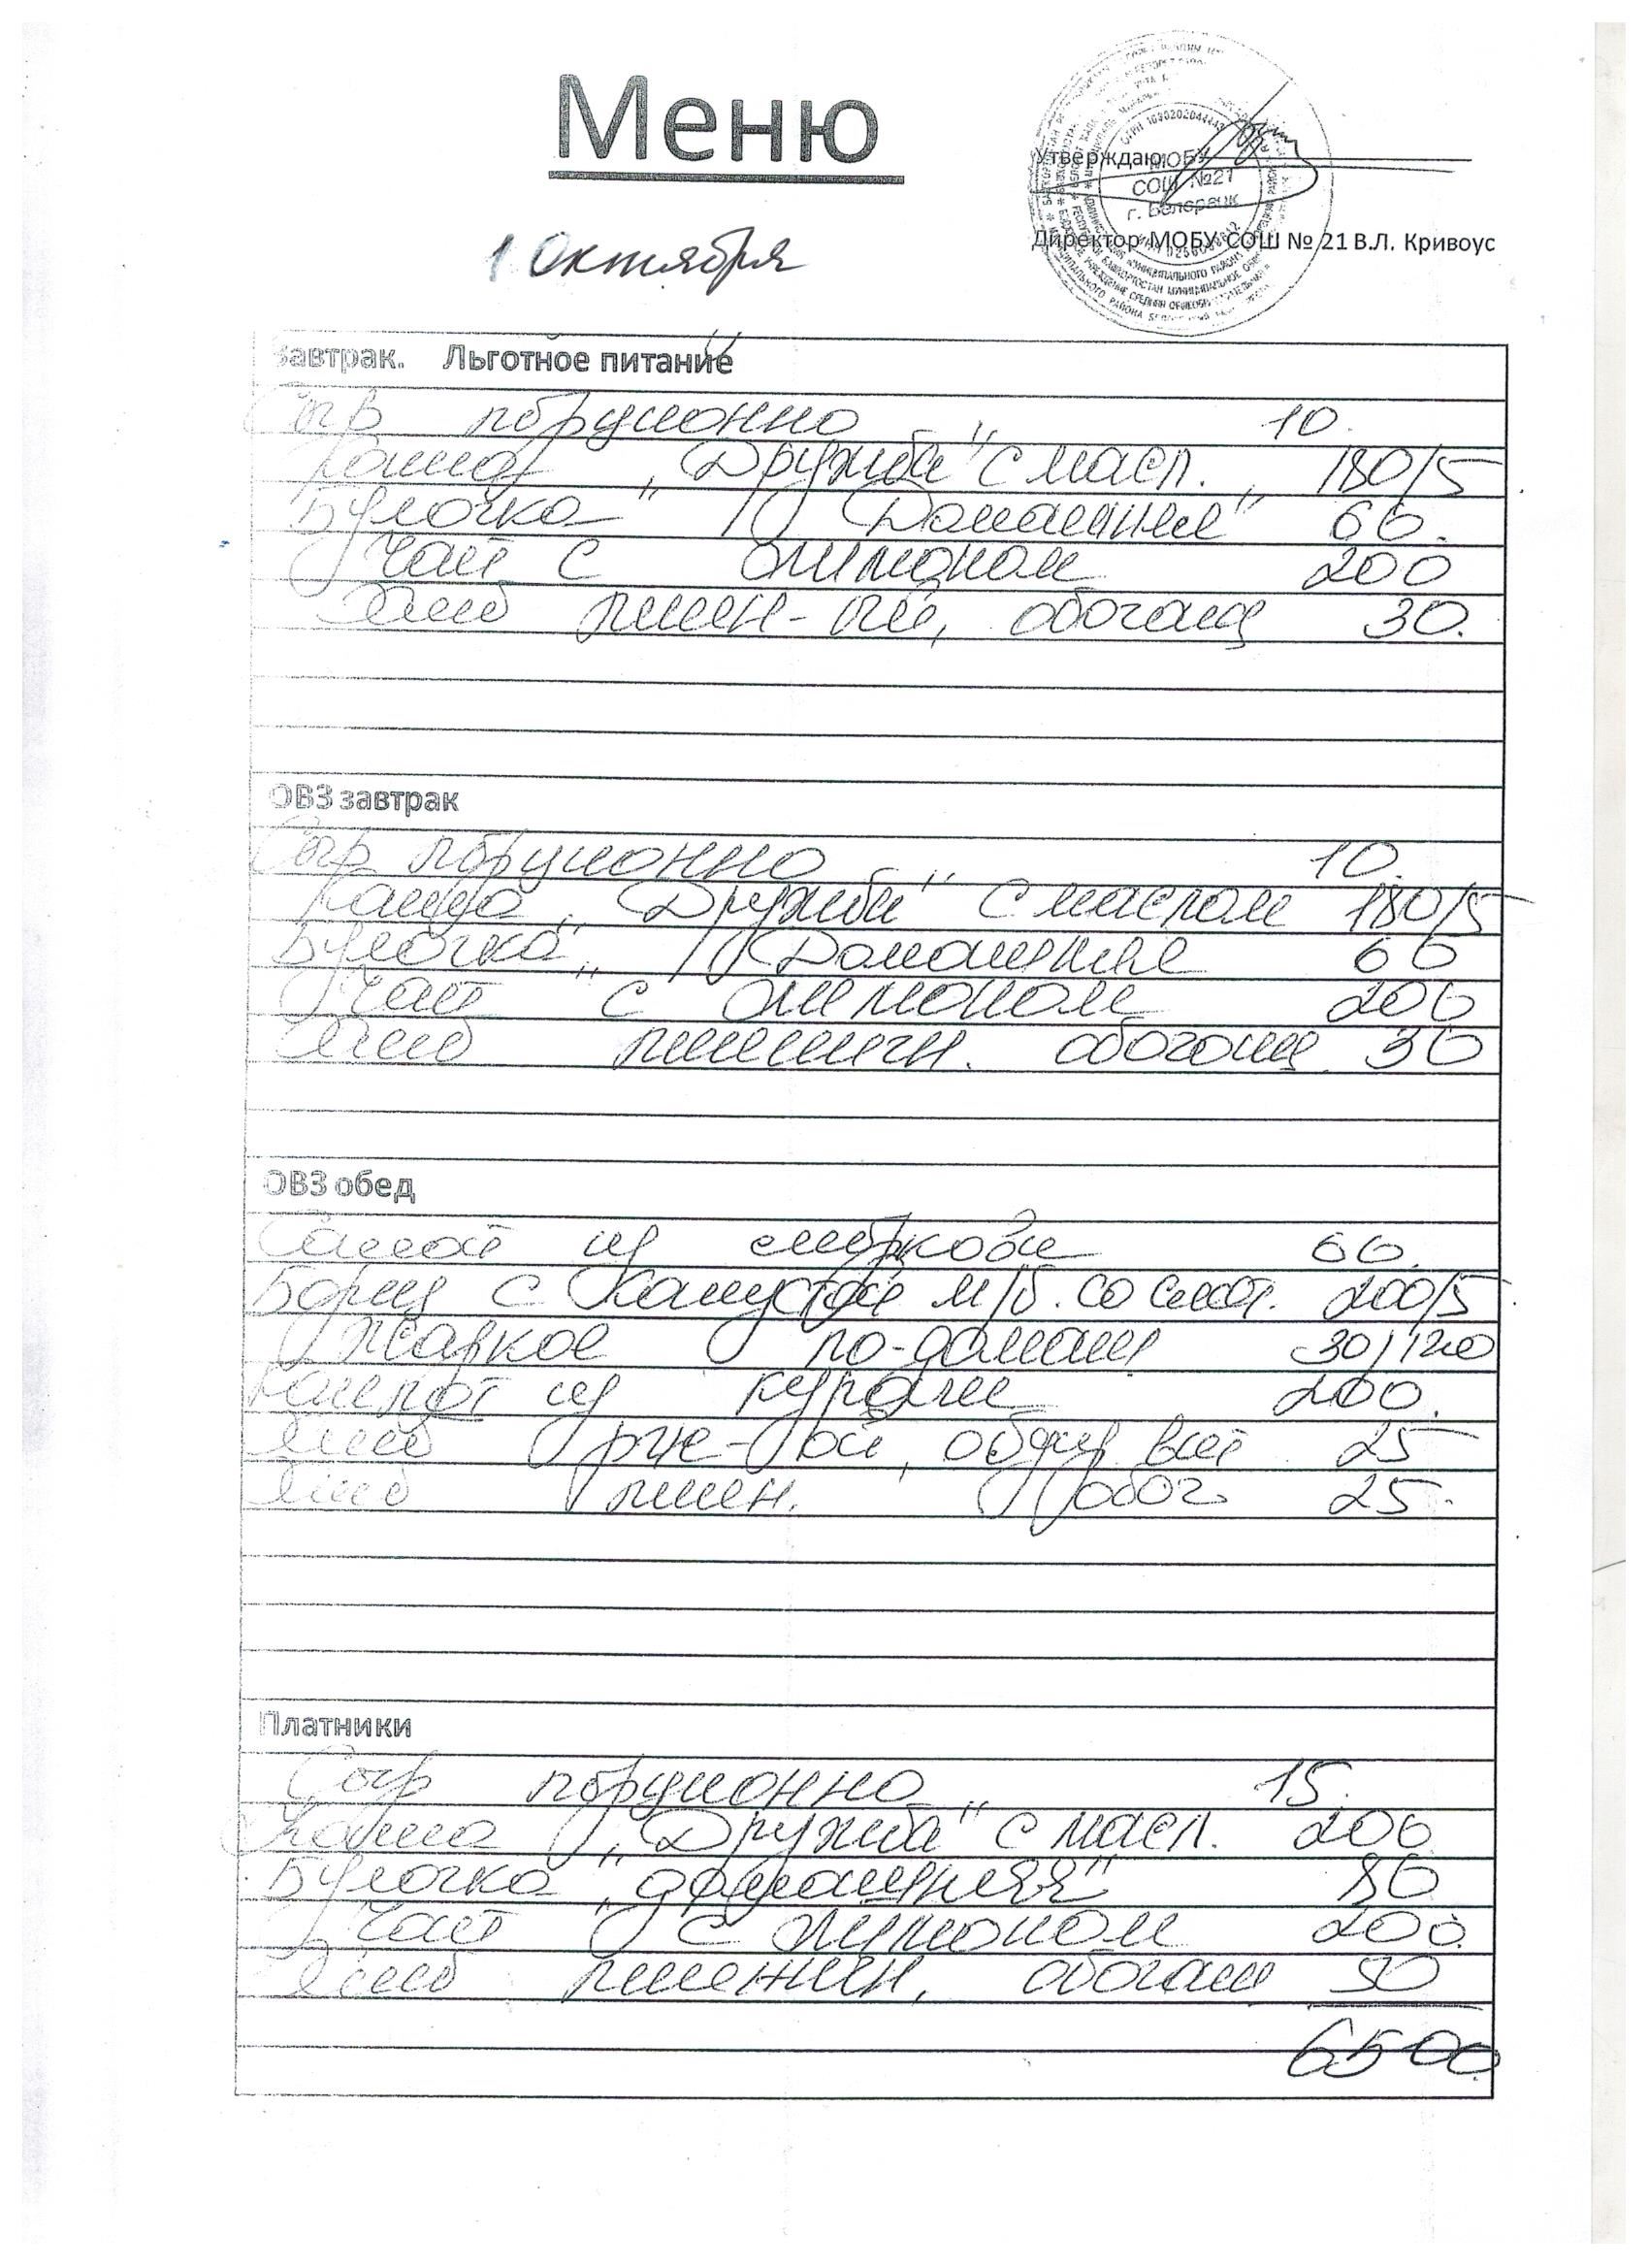 Меню
Утверждаю
МОБУ
СОШ №21
г. Белорецк
1 Октября
Директор МОБУ СОШ № 21 В.Л. Кривоус
Завтрак. Льготное питание
Сыр порционно 10.
Каша „Дружба" с масл. 180/5
Булочка „Домашняя" 60.
Чай с лимоном 200
Хлеб пшен-ый, обогащ 30.
ОВЗ завтрак
Сыр порционно 10.
Каша „Дружба" с маслом 180/5
Булочка „Домашняя 60
Чай с лимоном 200
Хлеб пшеничн. обогащ 30
ОВЗ обед
Салат из моркови 60.
Борщ с капустой м/б. со смет. 200/5
Жаркое по-домаш 30/120
Компот из кураги 200.
Хлеб рж-ой, обог. 25
Хлеб пшен. обог. 25.
Платники
Сыр порционно 15.
Каша „Дружба" с масл. 200
Булочка „домашняя" 80
Чай с лимоном 200.
Хлеб пшенич, обогащ 50
6500